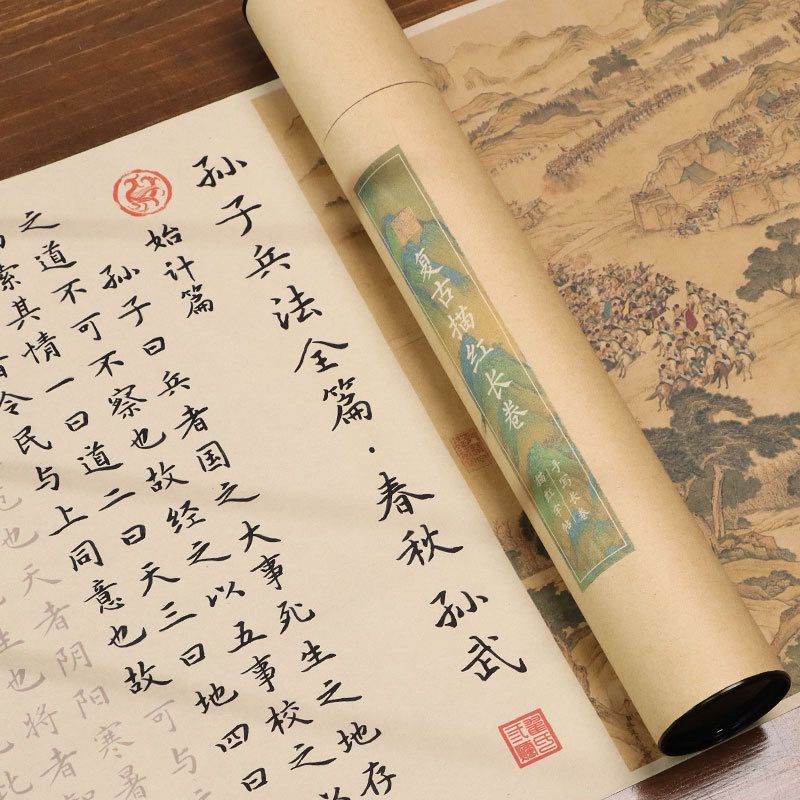 孙子兵法全篇·春秋孙武
始计篇
孙子曰兵者国之大事死生之地存
之道不可不察也故经之以五事校之
索其情一曰道二曰天三曰地四曰
令民与上同意也故可与
也天者阴阳寒暑
生也将者
复古描红长卷
手写长卷
描红字帖